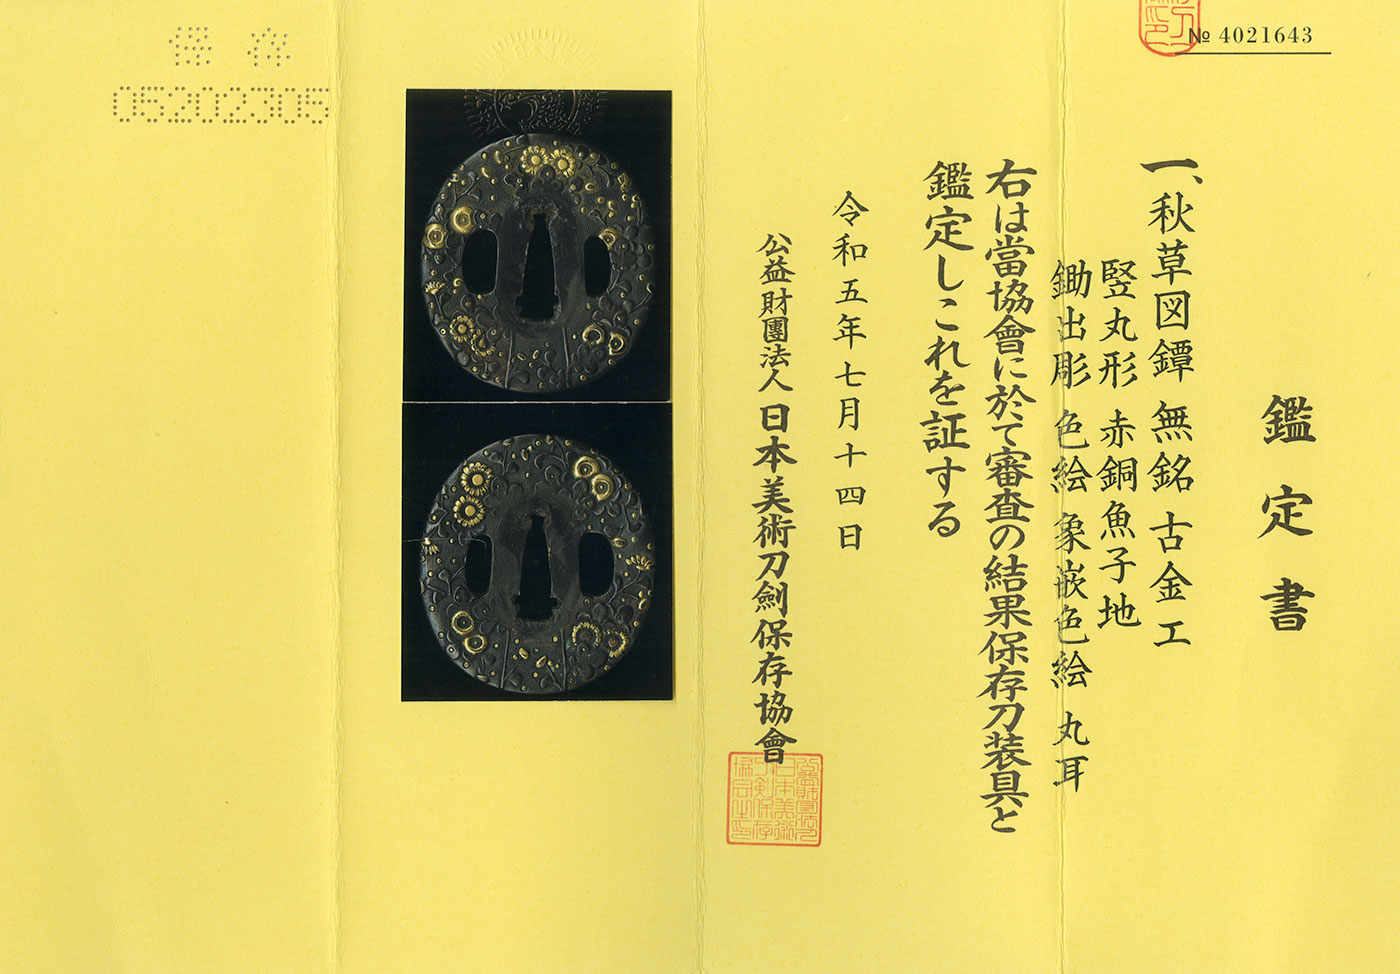 № 4021643
鑑定書
一、秋草図鐔 無銘 古金工
竪丸形 赤銅魚子地
鋤出彫 色絵 象嵌色絵 丸耳
右は當協會に於て審査の結果保存刀装具と
鑑定しこれを証する
令和五年七月十四日
公益財團法人 日本美術刀劍保存協會
保存
05202305